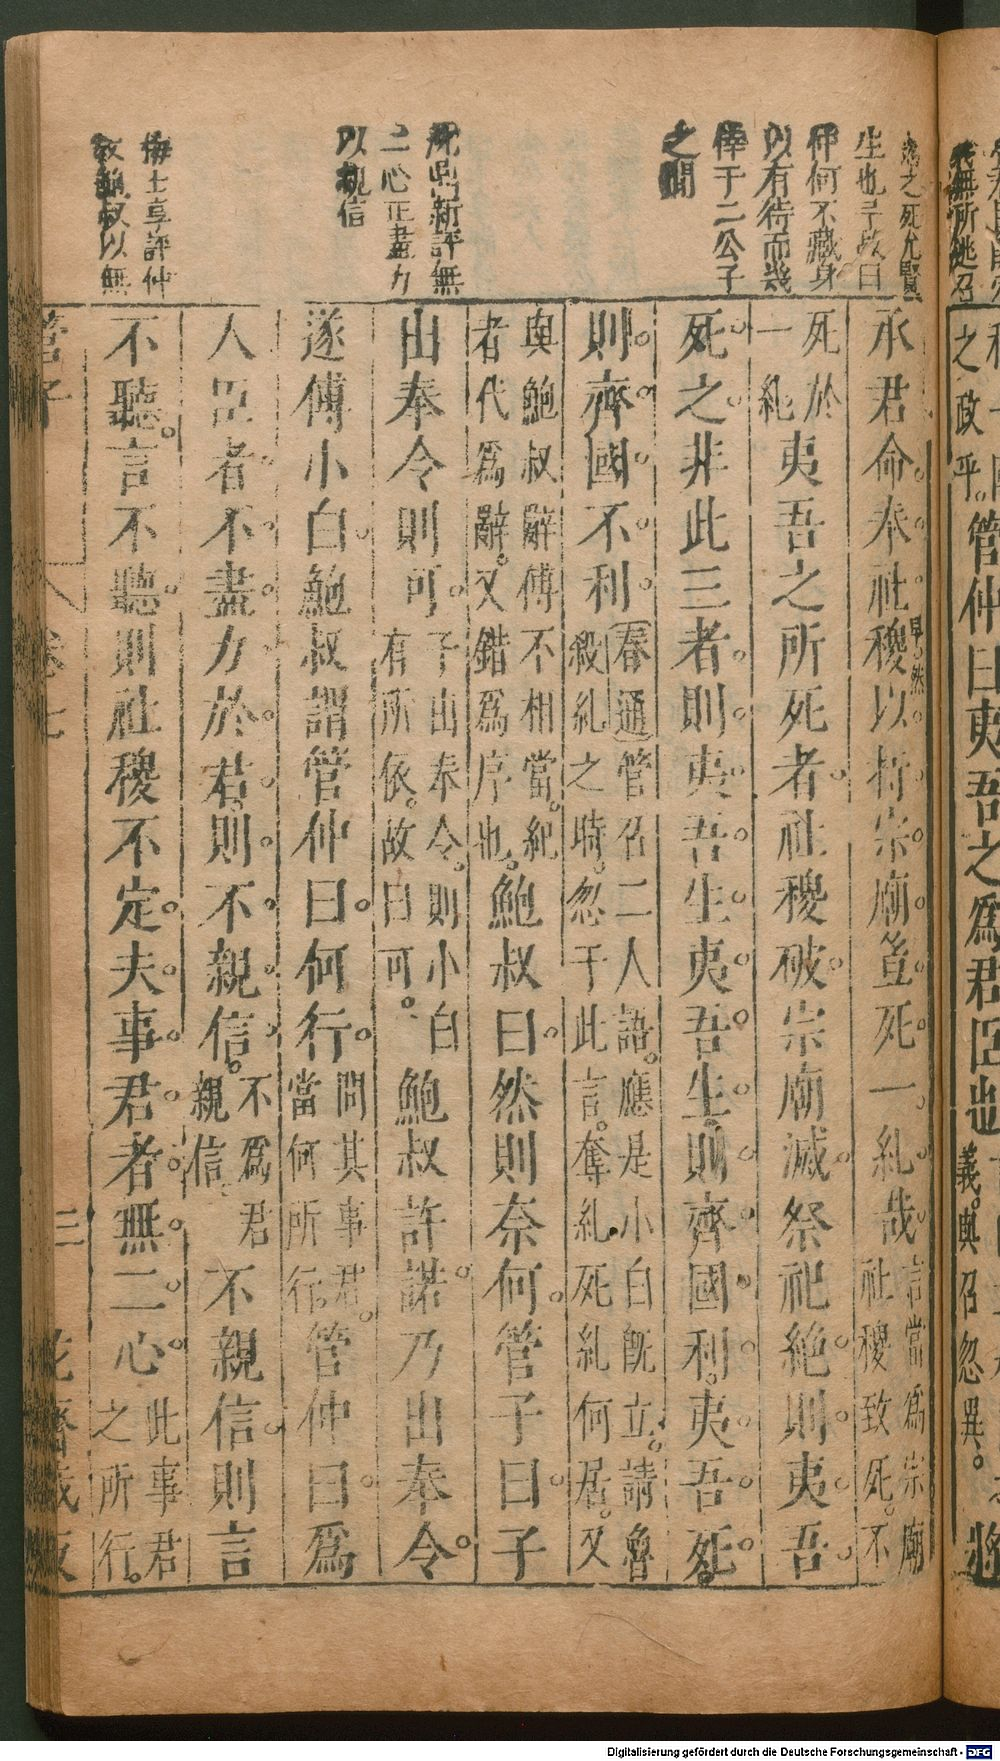 之政乎。管仲曰夷吾之爲君臣也義。與召忽異。
承君命奉社稷以持宗廟豈死一糺哉言當爲宗廟社稷致死。不
死於一糺夷吾之所死者社稷破宗廟滅祭祀絶則夷吾
死之非此三者則夷吾生夷吾生則齊國利。夷吾死。
則齊國不利春通管召二人語。應是小白旣立。請魯殺糺之時。忽于此言。奪糺死糺何居。又
與鮑叔辭傅不相當。紀者代爲辭。又錯爲序也。鮑叔曰然則奈何管子曰子
出奉令則可子出奉令。則小白有所依。故曰可。鮑叔許諾乃出奉令
遂傅小白鮑叔謂管仲曰何行問其事君。當何所行。管仲曰爲
人臣者不盡力於君。則不親信。不爲君親信不親信則言
不聽言不聽則社稷不定夫事君者無二心此事君之所行。
管子
卷七
三
花齋藏板
之死尤賢
生也子故曰
仲何不藏身
以有待而幾
倖于二公子
之間
沈鼎新評無
二心正盡力
以親信
梅士享評仲
教鮑叔以無
Digitalisierung gefördert durch die Deutsche Forschungsgemeinschaft - DFG